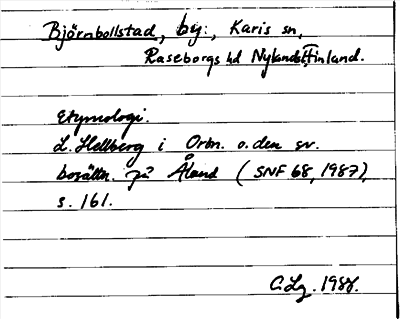 Björnbollstad, by:, Karis sn,
Raseborgs hd Nylands l, Finland.
Etymologi.
L. Hellberg i Ortn. o. den sv.
bosättn. på Åland (SNF 68, 1987),
s. 161.
C.Lg. 1988.